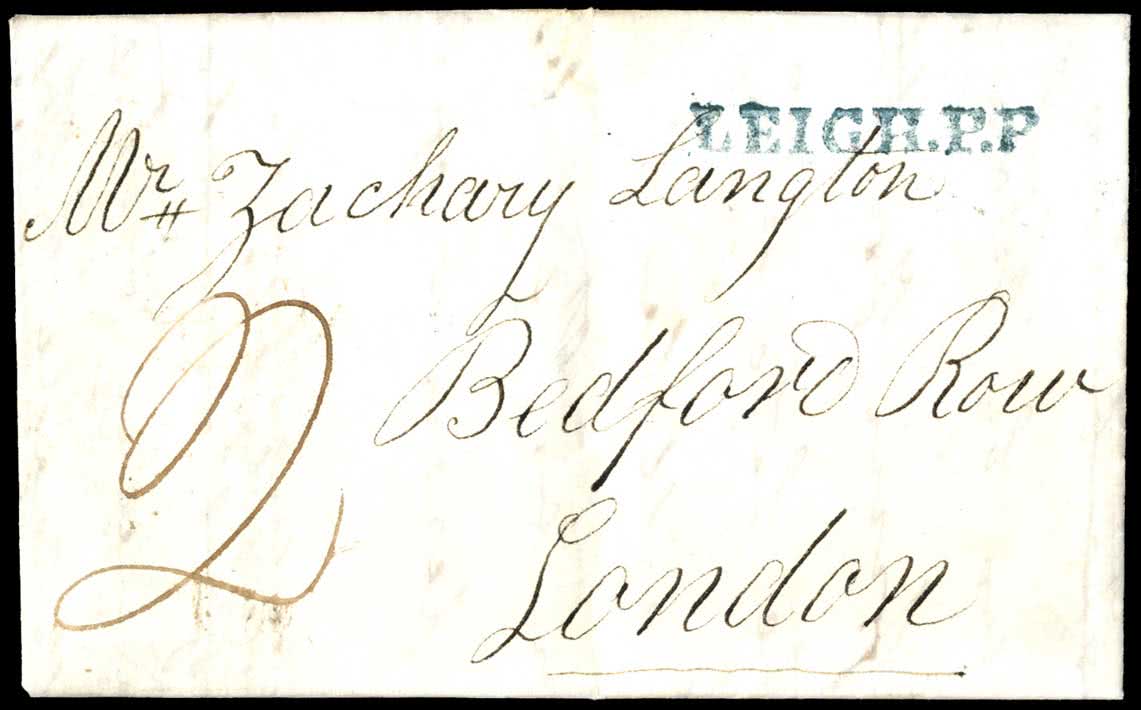 LEIGH.P.P
Mr Zachary Langton
2
Bedford Row
London